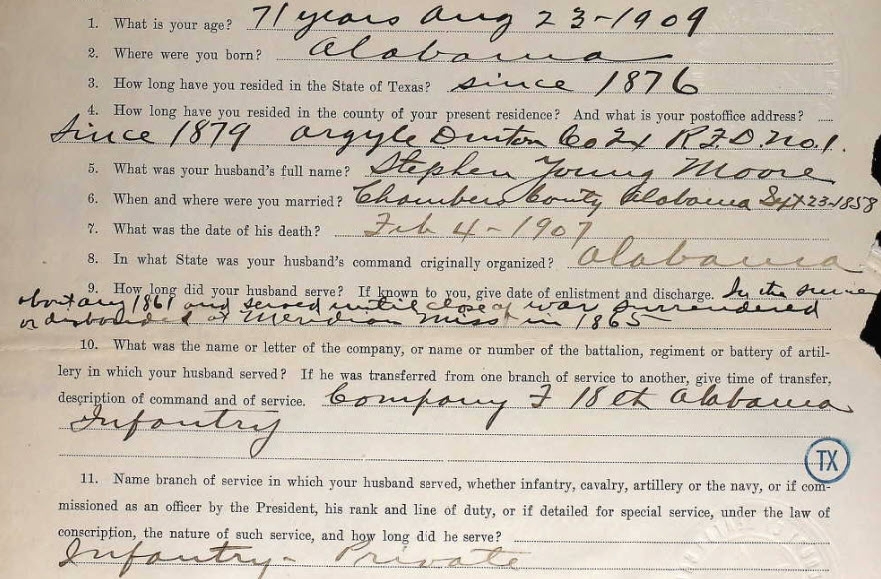 1. What is your age? 71 years Aug 23-1909
2. Where were you born? Alabama
3. How long have you resided in the State of Texas? Since 1876
4. How long have you resided in the county of your present residence? And what is your postoffice address?
Since 1879 Argyle Denton Co Tx R.F.D. No. 1.
5. What was your husband's full name? Stephen Young Moore
6. When and where were you married? Chambers County Alabama Sept 23-1858
7. What was the date of his death? Feb 4-1907
8. In what State was your husband's command originally organized? Alabama
9. How long did your husband serve? If known to you, give date of enlistment and discharge. In the
about Aug 1861 and served until close of war surrendered
or disbanded at Meridian Miss in 1865
10. What was the name or letter of the company, or name or number of the battalion, regiment or battery of artil-
lery in which your husband served? If he was transferred from one branch of service to another, give time of transfer,
description of command and of service. Company F 18th Alabama
Infantry
TX
11. Name branch of service in which your husband served, whether infantry, cavalry, artillery or the navy, or if com-
missioned as an officer by the President, his rank and line of duty, or if detailed for special service, under the law of
conscription, the nature of such service, and how long did he serve?
Infantry - Private